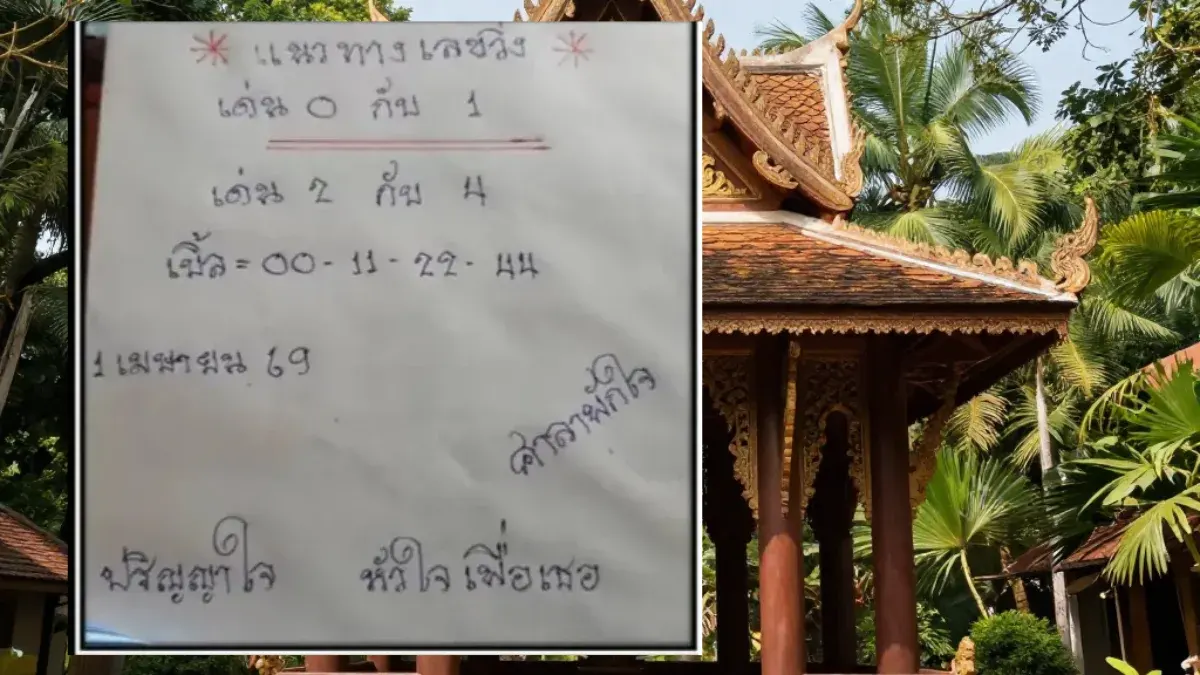 * แนวทางเลขวิ่ง *
เด่น 0 กับ 1
เด่น 2 กับ 4
เบิ้ล = 00 - 11 - 22 - 44
1 เมษายน 69
ศาลาพักใจ
ปริญญาใจ หัวใจเพื่อเธอ